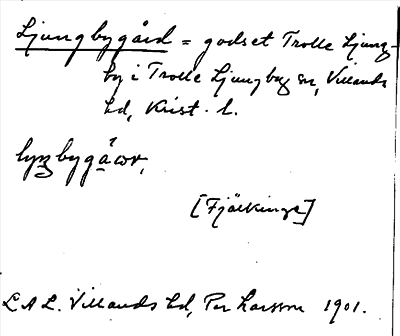 Ljungbygård = godset Trolle Ljung-
by i Trolle Ljungby sn, Villands
hd, Krist. l.
[Fjälkinge]
L A L. Villands hd, Per Larsson 1901.